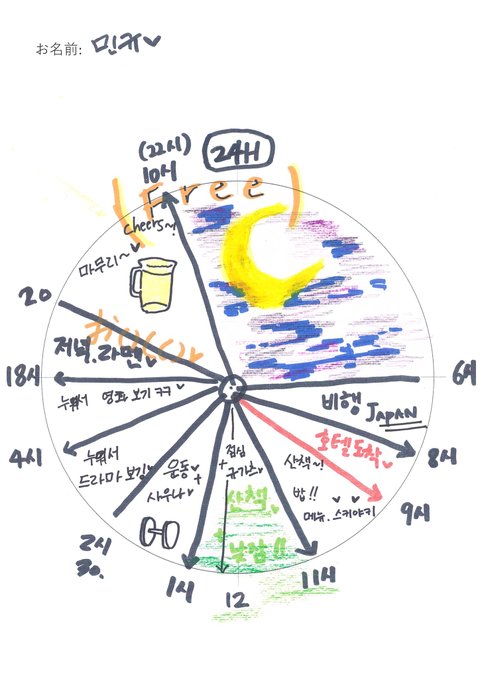 お名前: 민규♥
(22시)
10시
24H
(Free)
cheers~!
마무리~
20
おいしい♥
저녁.라면♥
18시
6시
누워서 영화 보기 ㅋㅋ♥
비행 JAPAN
호텔도착♥
4시
8시
누워서
드라마 보기♥
운동♥
+
사우나♥
점심
+
산책~!
밥!!
메뉴. 스키야키
9시
산책
+
낮잠!!
2시
30.
1시
12
11시